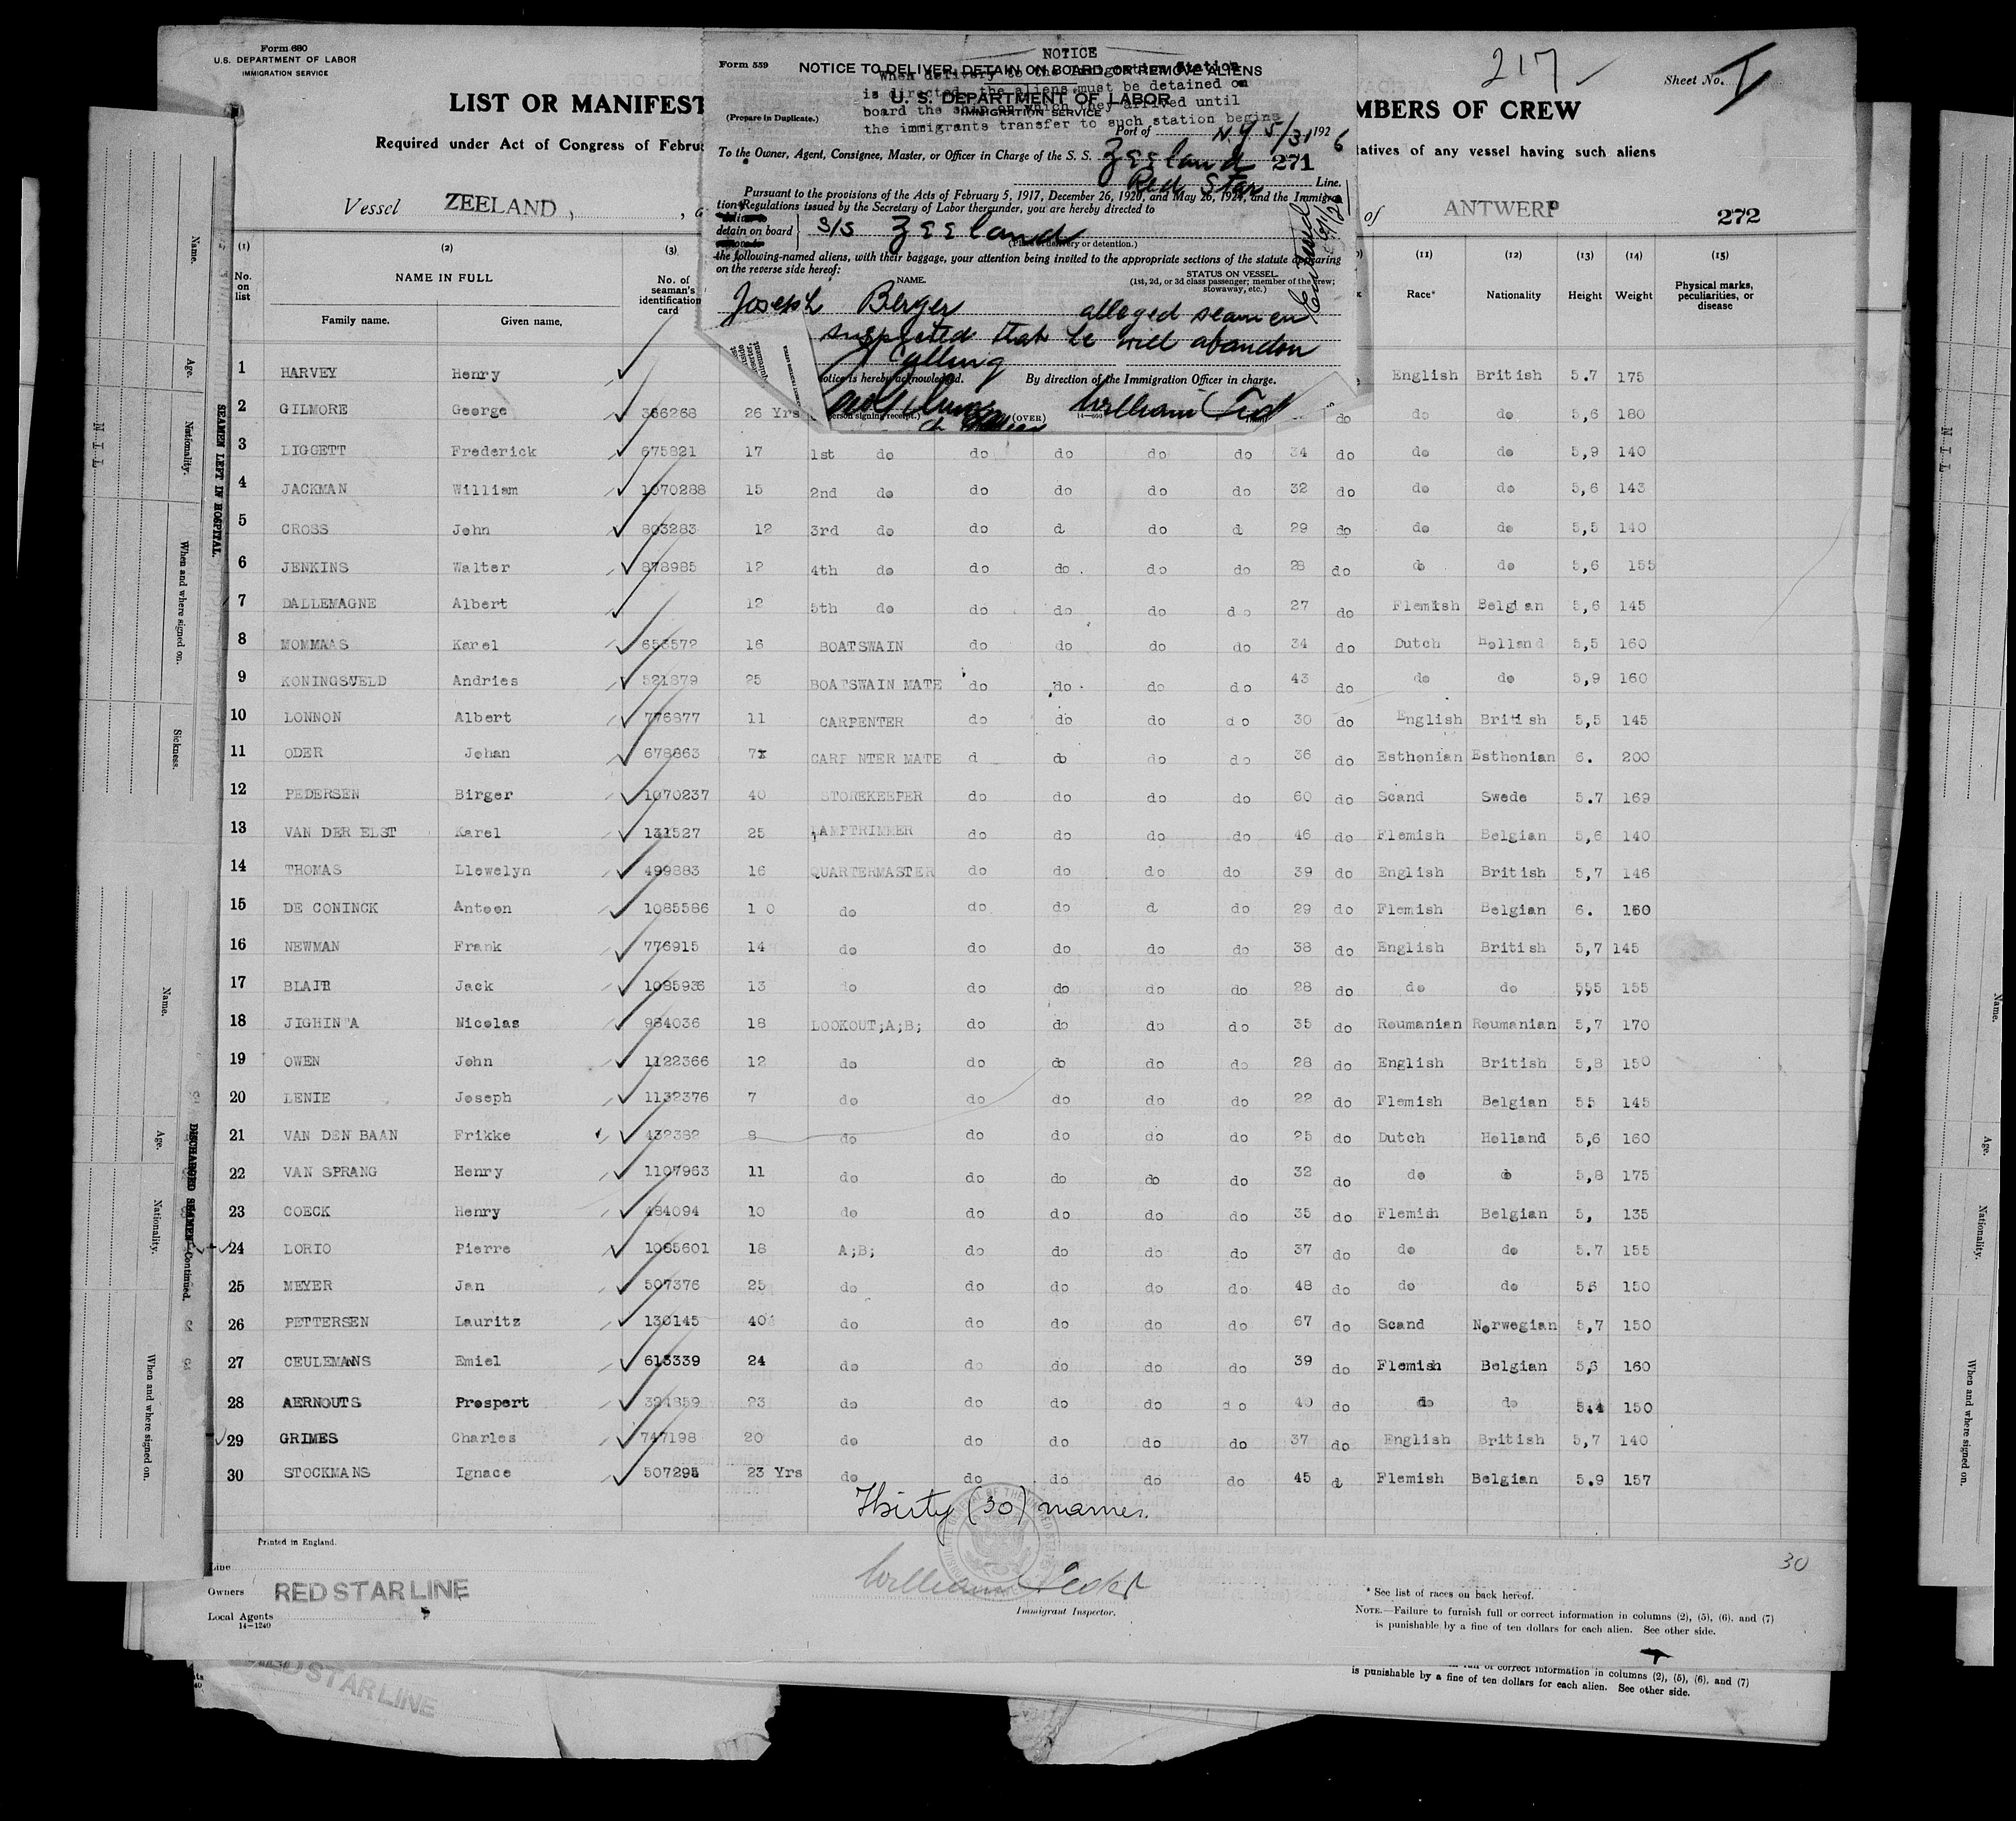 Form 680
U.S. DEPARTMENT OF LABOR
IMMIGRATION SERVICE
LIST OR MANIFEST
Required under Act of Congress of Febru
Vessel ZEELAND,
MBERS OF CREW
217
Sheet No. I
tatives of any vessel having such aliens
of ANTWERP
272
NOTICE
When delivery to the immigration station
is directed, the aliens must be detained on
board the ship on which they arrived until
the immigrants transfer to such station begins
Form 559
NOTICE TO DELIVER, DETAIN ON BOARD, OR REMOVE ALIENS
U. S. DEPARTMENT OF LABOR
IMMIGRATION SERVICE
(Prepare in Duplicate.)
Port of N.Y 5/31 1926
To the Owner, Agent, Consignee, Master, or Officer in Charge of the S. S. Zeeland 271
Red Star Line.
Pursuant to the provisions of the Acts of February 5, 1917, December 26, 1920, and May 26, 1924, and the Immigra-
tion Regulations issued by the Secretary of Labor thereunder, you are hereby directed to
detain on board } S/S Zeeland
(Place of delivery or detention.)
the following-named aliens, with their baggage, your attention being invited to the appropriate sections of the statute appearing
on the reverse side hereof:
NAME. STATUS ON VESSEL
(1st, 2d, or 3d class passenger; member of the crew; stowaway, etc.)
Joseph Berger alleged seamen
suspected that he will abandon
calling
notice is hereby acknowledged. By direction of the Immigration Officer in charge.
person signing receipt.) (OVER) William
(1) (2) (3) (11) (12) (13) (14) (15)
No. on list NAME IN FULL No. of seaman's identification card Race* Nationality Height Weight Physical marks, peculiarities, or disease
Family name. Given name,
1 HARVEY Henry English British 5.7 175
2 GILMORE George 366268 26 Yrs do do do 5,6 180
3 LIGGETT Frederick 675821 17 1st do do do do do 34 do do do 5,9 140
4 JACKMAN William 1070288 15 2nd do do do do do 32 do do do 5,6 143
5 CROSS John 803283 12 3rd do do d do d 29 do do do 5,5 140
6 JENKINS Walter 878985 12 4th do do do do do 28 do do do 5,6 155
7 DALLEMAGNE Albert 12 5th do do do do do 27 do Flemish Belgian 5,6 145
8 MOMMAAS Karel 653572 16 BOATSWAIN do do do do 34 do Dutch Holland 5,5 160
9 KONINGSVELD Andries 521879 25 BOATSWAIN MATE do do do do 43 do do do 5,9 160
10 LONNON Albert 776877 11 CARPENTER do do do do 30 do English British 5,5 145
11 ODER Johan 678863 7 CARP NTER MATE d do do do 36 do Esthonian Esthonian 6. 200
12 PEDERSEN Birger 1070237 40 STOREKEEPER do do do do 60 do Scand Swede 5.7 169
13 VAN DER ELST Karel 131527 25 LAMPTRIMMER do do do do 46 do Flemish Belgian 5,6 140
14 THOMAS Llewelyn 499883 16 QUARTERMASTER do do do do 39 do English British 5,7 146
15 DE CONINCK Antoon 1085586 1 0 do do do d do 29 do Flemish Belgian 6. 160
16 NEWMAN Frank 776915 14 do do do do do 38 do English British 5,7 145
17 BLAIR Jack 1085936 13 do do do do do 28 do do do 5,5 155
18 JIGHINTA Nicolas 984036 18 LOOKOUT;A;B; do do do do 35 do Roumanian Roumanian 5,7 170
19 OWEN John 1122366 12 do do do do do 28 do English British 5,8 150
20 LENIE Joseph 1132376 7 do do do do do 22 do Flemish Belgian 55 145
21 VAN DEN BAAN Frikke 432382 8 do do do do do 25 do Dutch Holland 5,6 160
22 VAN SPRANG Henry 1107963 11 do do do do do 32 do do do 5,8 175
23 COECK Henry 484094 10 do do do do do 35 do Flemish Belgian 5, 135
24 LORIO Pierre 1065601 18 A;B; do do do do 37 do do do 5.7 155
25 MEYER Jan 507376 25 do do do do do 48 do do do 56 150
26 PETTERSEN Lauritz 130145 40 do do do do do 67 do Scand Norwegian 5,7 150
27 CEULEMANS Emiel 613339 24 do do do do do 39 do Flemish Belgian 5,6 160
28 AERNOUTS Prospert 324859 23 do do do do do 40 do do do 5.4 150
29 GRIMES Charles 747198 20 do do do do do 37 do English British 5,7 140
30 STOCKMANS Ignace 507295 23 Yrs do do do do do 45 d Flemish Belgian 5.9 157
Thirty (30) names.
Printed in England.
30
Line
Owners RED STAR LINE
Local Agents
14-1240
William
Immigrant Inspector.
* See list of races on back hereof.
NOTE.—Failure to furnish full or correct information in columns (2), (5), (6), and (7)
is punishable by a fine of ten dollars for each alien. See other side.
full or correct information in columns (2), (5), (6), and (7)
is punishable by a fine of ten dollars for each alien. See other side.
STAR LINE
Name.
Age.
Nationality.
When and where signed on.
Sickness.
NIL
SEAMEN LEFT IN HOSPITAL.
Name.
Age.
Nationality.
When and where signed on.
DISCHARGED SEAMEN—Continued.
NIL
Name.
Age.
Nationality.
When and where signed on.